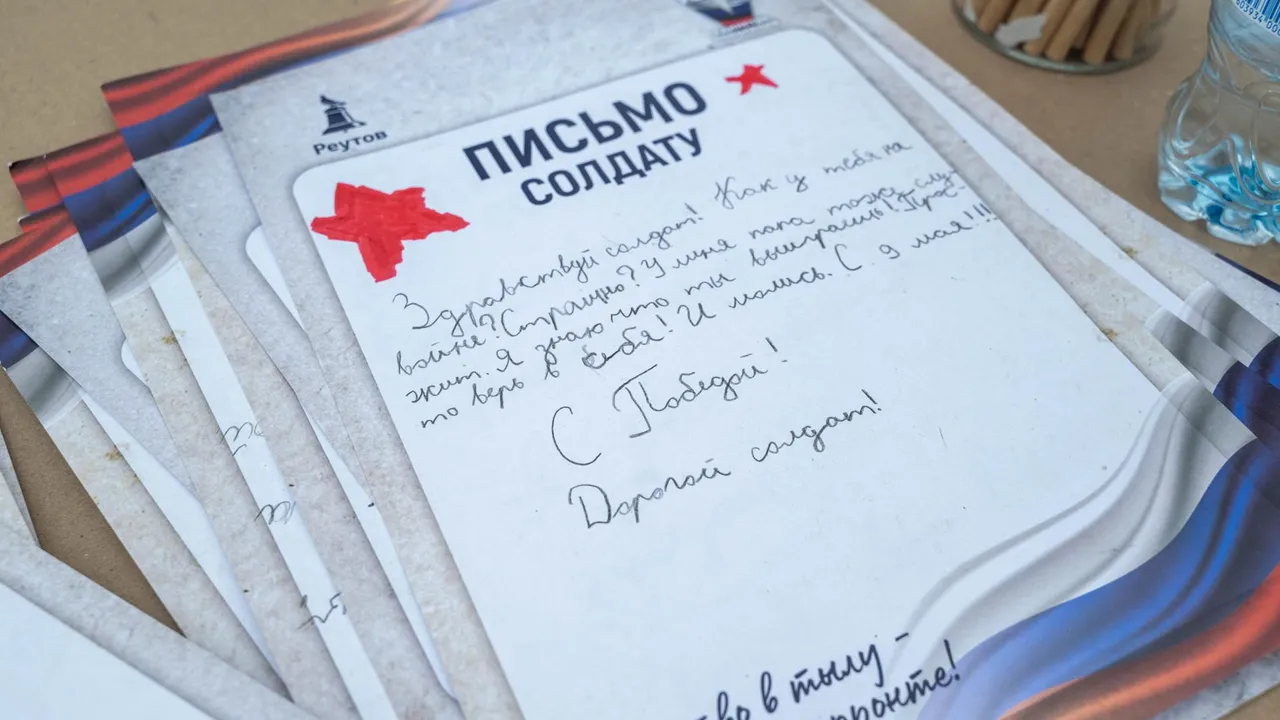 Реутов
ПИСЬМО
СОЛДАТУ
Здравствуй солдат! Как у тебя на
войне? Страшно? У меня папа тоже слу-
жит. Я знаю что ты выиграешь! Прос-
то верь в себя! И молись. С 9 мая!!!
С Победой!
Дорогой солдат!
в тылу -
фронте!